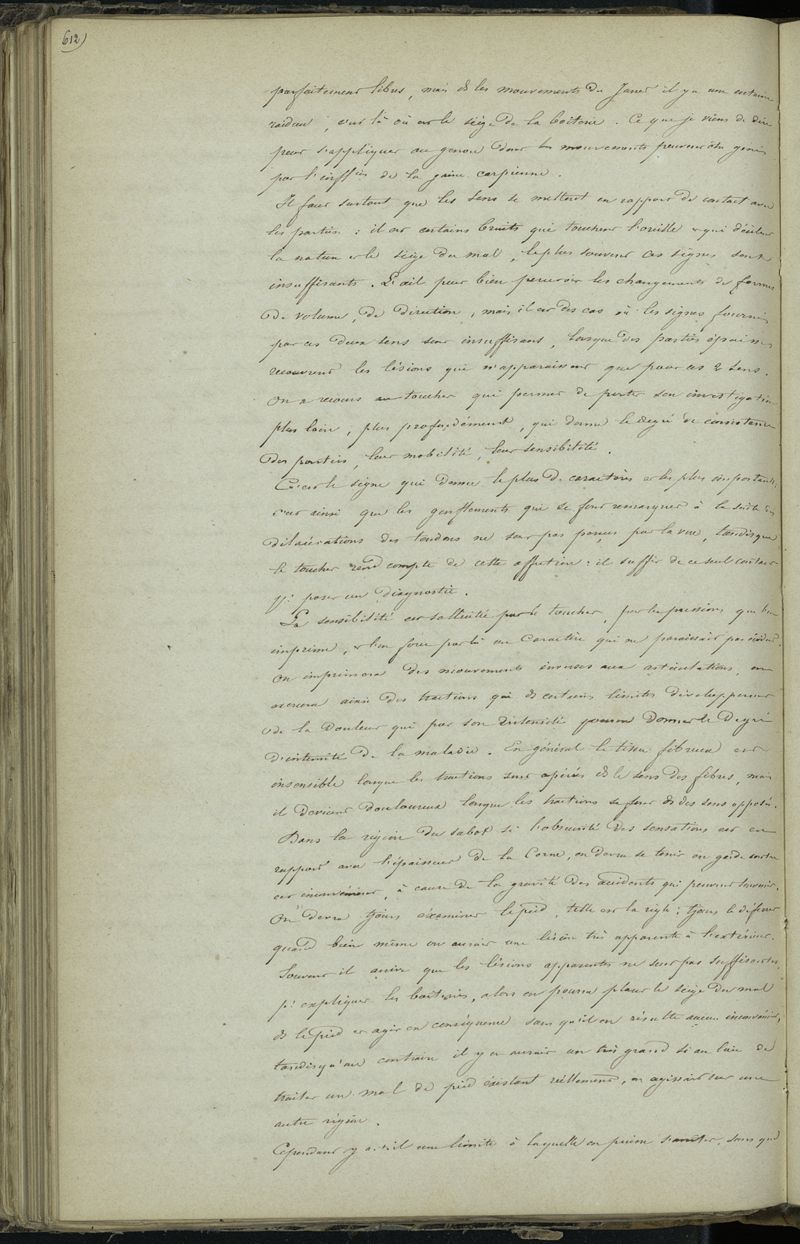 612)
parfaitement libres, mais ds les mouvements du Jarret il y a une certaine
raideur, c'est là où est le siège de la boiterie. Ce que je viens de dire
peut s'appliquer au genou dont les mouvements peuvent être gênés
par l'infl.on de la gaine carpienne.
Il faut surtout que les sens se mettent en rapport de contact avec
les parties : il est certains bruits qui touchent l'oreille & qui décèlent
la nature et le siège du mal, le plus souvent ces signes sont
insuffisants. L'œil peut bien percevoir les changements de formes
de volume, de direction, mais il est des cas où les signes fournis
par ces deux sens sont insuffisants, lorsque des parties épaisses
recouvrent les lésions qui n'apparaissent que pour ces 2 sens.
On a recours au toucher qui permet de porter son investigation
plus loin, plus profondément, qui donne le degré de consistance
des parties, leur mobilité, leur sensibilité.
C'est le signe qui donne le plus de caractères et les plus importants,
c'est ainsi que les gonflements qui se font remarquer à la suite des
dilacérations des tendons ne sont pas perçus par la vue, tandis que
le toucher rend compte de cette affection : il suffit de ce seul contact
pr poser un diagnostic.
La sensibilité est sollicitée par le toucher, par les pressions que l'on
imprime, & l'on fera par là un caractère qui ne paraissait pas
On imprimera des mouvements aux articulations, on
exercera ainsi des tractions qui ds certaines limites développeront
de la douleur qui par son intensité pourra donner le degré
d'intensité de la maladie. En général le tissu fibreux est
insensible lorsque les tractions sont opérées ds le sens des fibres, mais
il devient douloureux lorsque les tractions se font ds des sens opposés.
Dans la région du sabot si l'obscurité des sensations est en
rapport avec l'épaisseur de la Corne, on devra se tenir en garde contre
cet inconvénient, à cause de la gravité des accidents qui peuvent survenir.
On devra tjours examiner le pied, telle est la règle : tjours le déferrer
quand bien même on aurait une lésion très apparente à l'extérieur.
Souvent il arrive que les lésions apparentes ne sont pas suffisantes,
pr expliquer les boiteries, alors on pourra placer le siège du mal
ds le pied et agir en conséquence sans qu'il en résulte aucun inconvénient,
tandis qu'au contraire il y en aurait un très grand si au lieu de
traiter un mal de pied existant réellement, on agissait sur une
autre région.
Cependant y a-t-il une limite à laquelle on puisse s'arrêter, sans que